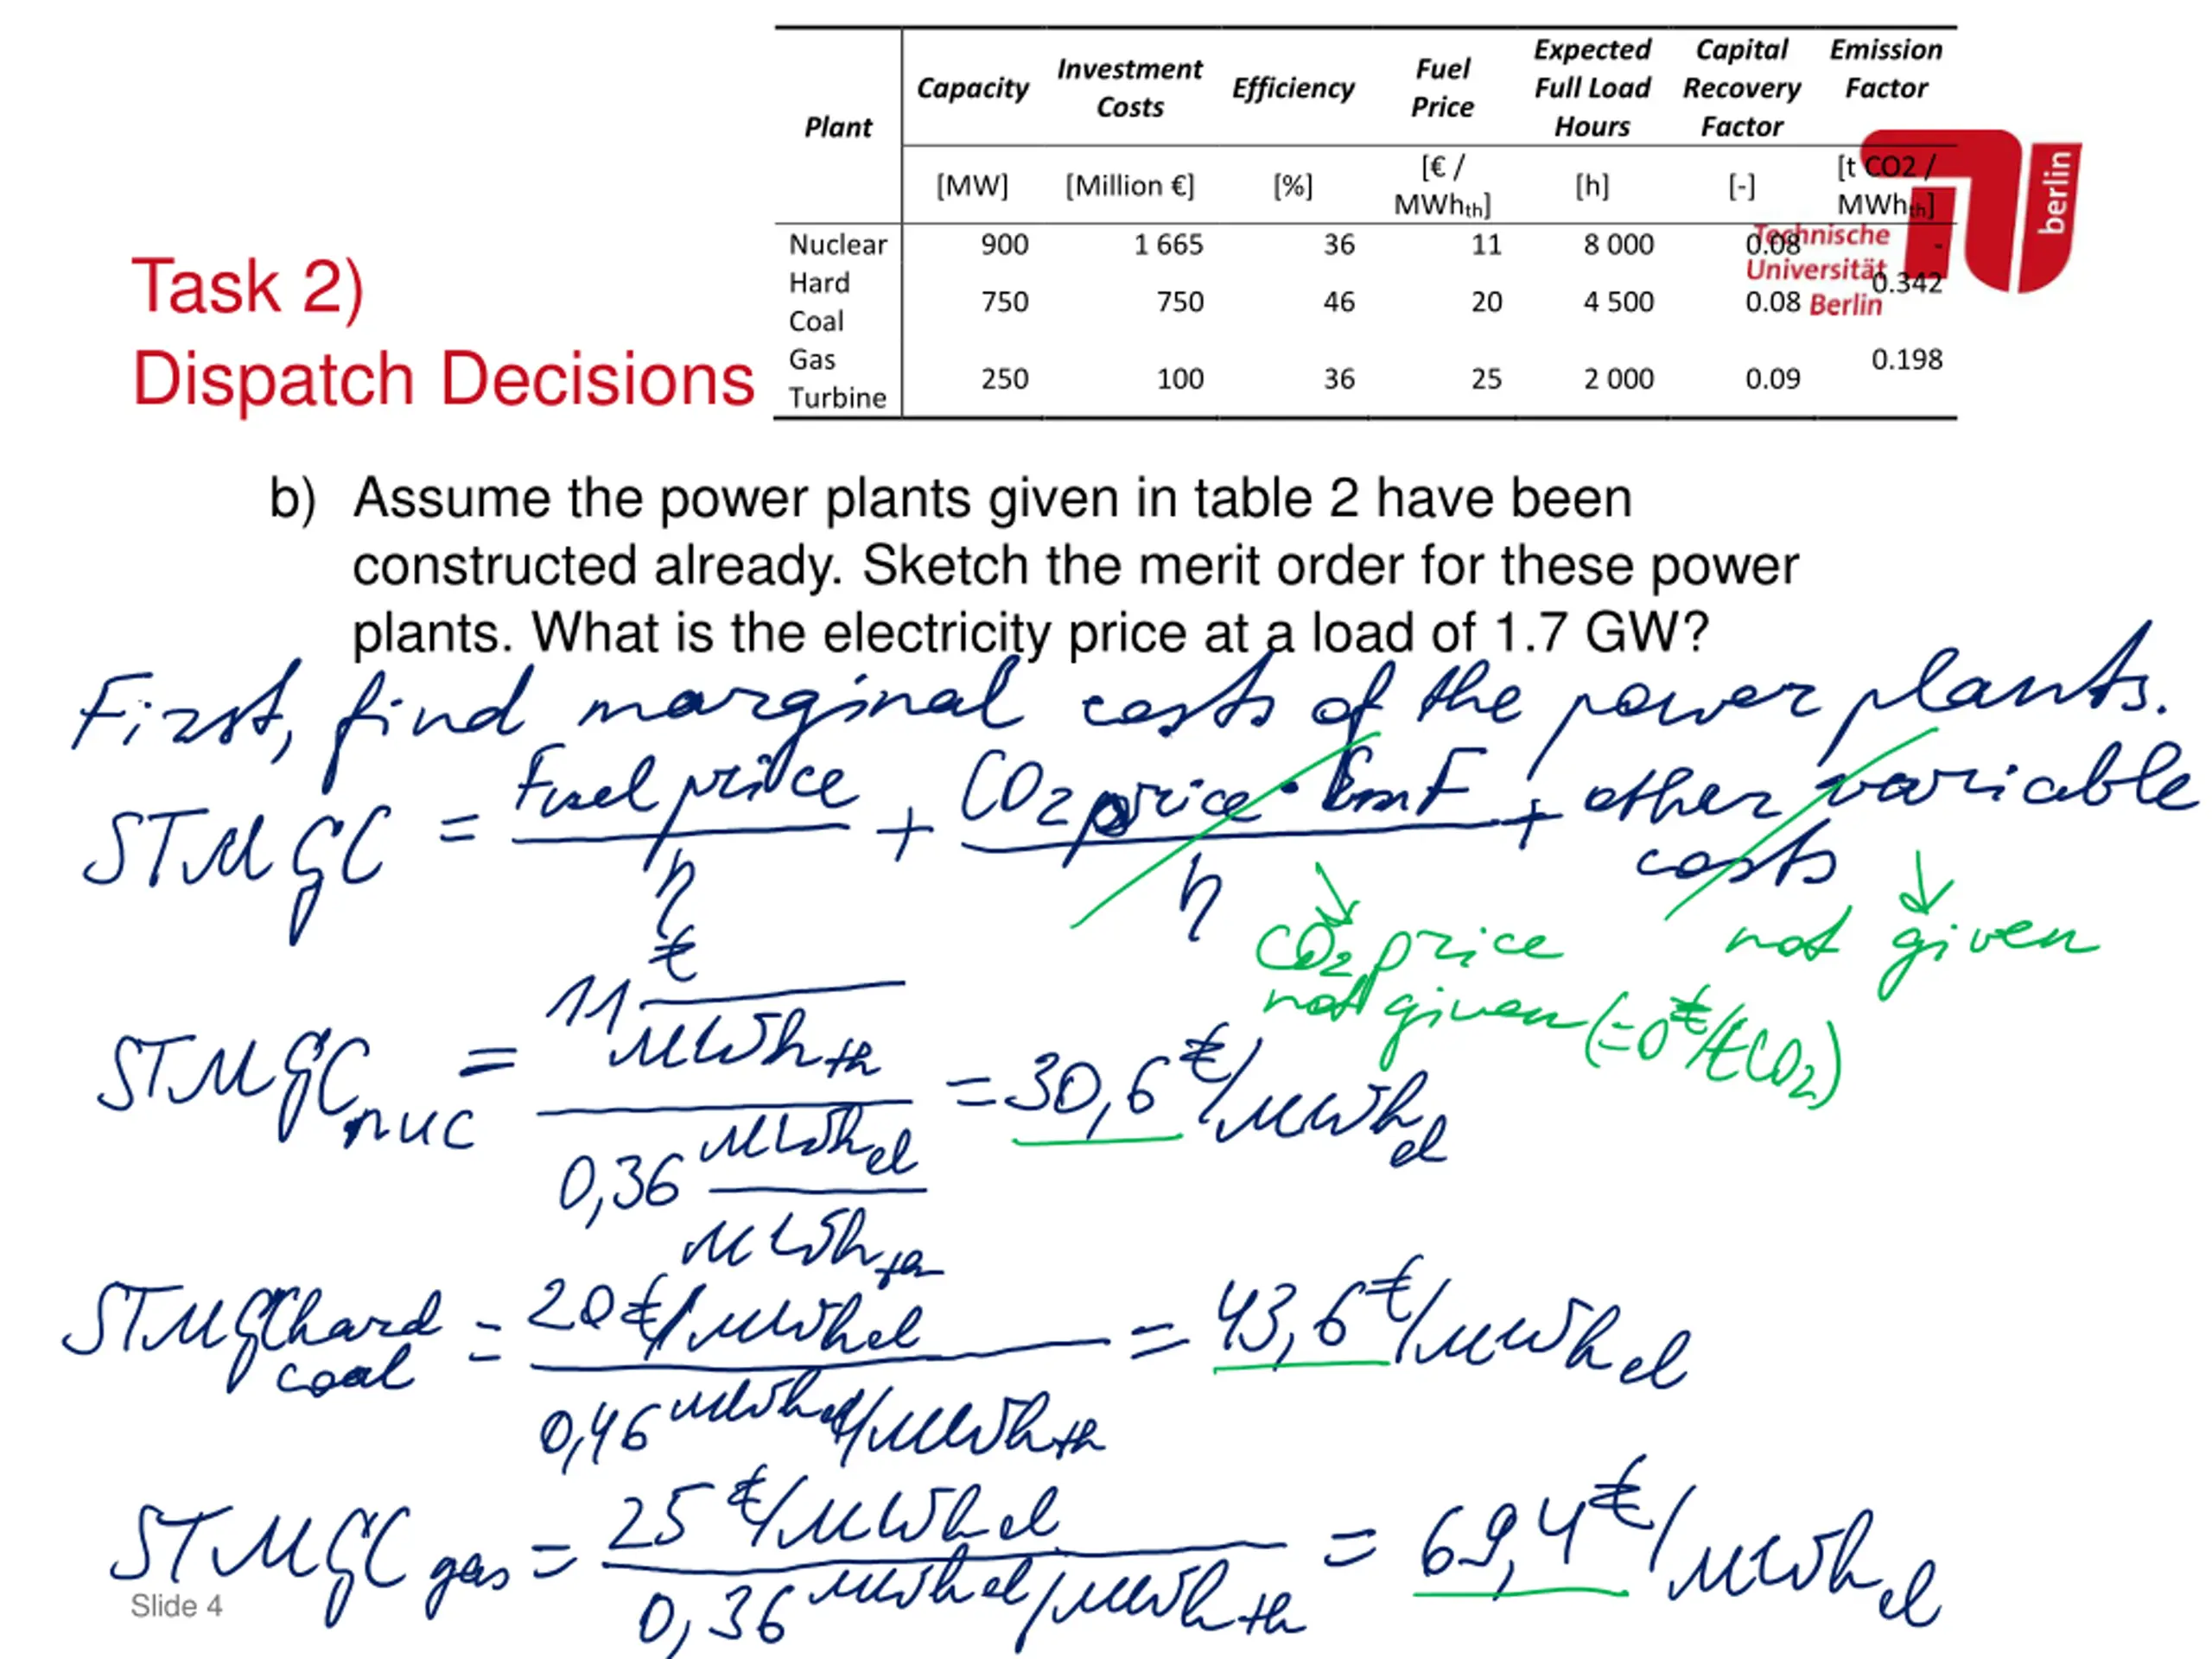 Plant Capacity Investment Costs Efficiency Fuel Price Expected Full Load Hours Capital Recovery Factor Emission Factor
[MW] [Million €] [%] [€ / MWhth] [h] [-] [t CO2 / MWhth]
Nuclear 900 1 665 36 11 8 000 0.08 -
Hard Coal 750 750 46 20 4 500 0.08 0.342
Gas Turbine 250 100 36 25 2 000 0.09 0.198
berlin
Technische
Universität
Berlin
Task 2)
Dispatch Decisions
b) Assume the power plants given in table 2 have been
constructed already. Sketch the merit order for these power
plants. What is the electricity price at a load of 1.7 GW?
First, find marginal costs of the power plants.
STMGC = Fuel price / η + CO2 price · EmF / η + other variable costs
CO2 price
not given (=0€/tCO2)
not given
STMGCnuc = 11 €/MWhth / 0,36 MWhel/MWhth = 30,6 €/MWhel
STMGChard coal = 20 €/MWhel / 0,46 MWhel/MWhth = 43,6 €/MWhel
STMGCgas = 25 €/MWhel / 0,36 MWhel/MWhth = 69,4 €/MWhel
Slide 4